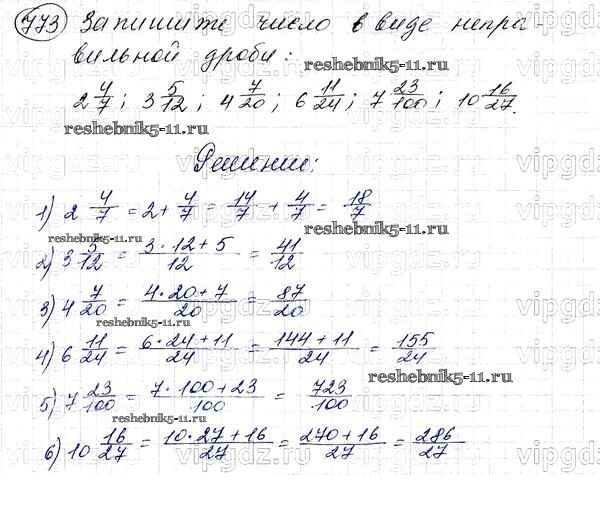 773 Запишите число в виде непра-
вильной дроби:
reshebnik5-11.ru
2 4/7; 3 5/12; 4 7/20; 6 11/24; 7 23/100; 10 16/27.
reshebnik5-11.ru
Решение:
1) 2 4/7 = 2 + 4/7 = 14/7 + 4/7 = 18/7
reshebnik5-11.ru
reshebnik5-11.ru
2) 3 5/12 = (3·12+5)/12 = 41/12
3) 4 7/20 = (4·20+7)/20 = 87/20
reshebnik5-11.ru
4) 6 11/24 = (6·24+11)/24 = (144+11)/24 = 155/24
reshebnik5-11.ru
5) 7 23/100 = (7·100+23)/100 = 723/100
reshebnik5-11.ru
6) 10 16/27 = (10·27+16)/27 = (270+16)/27 = 286/27